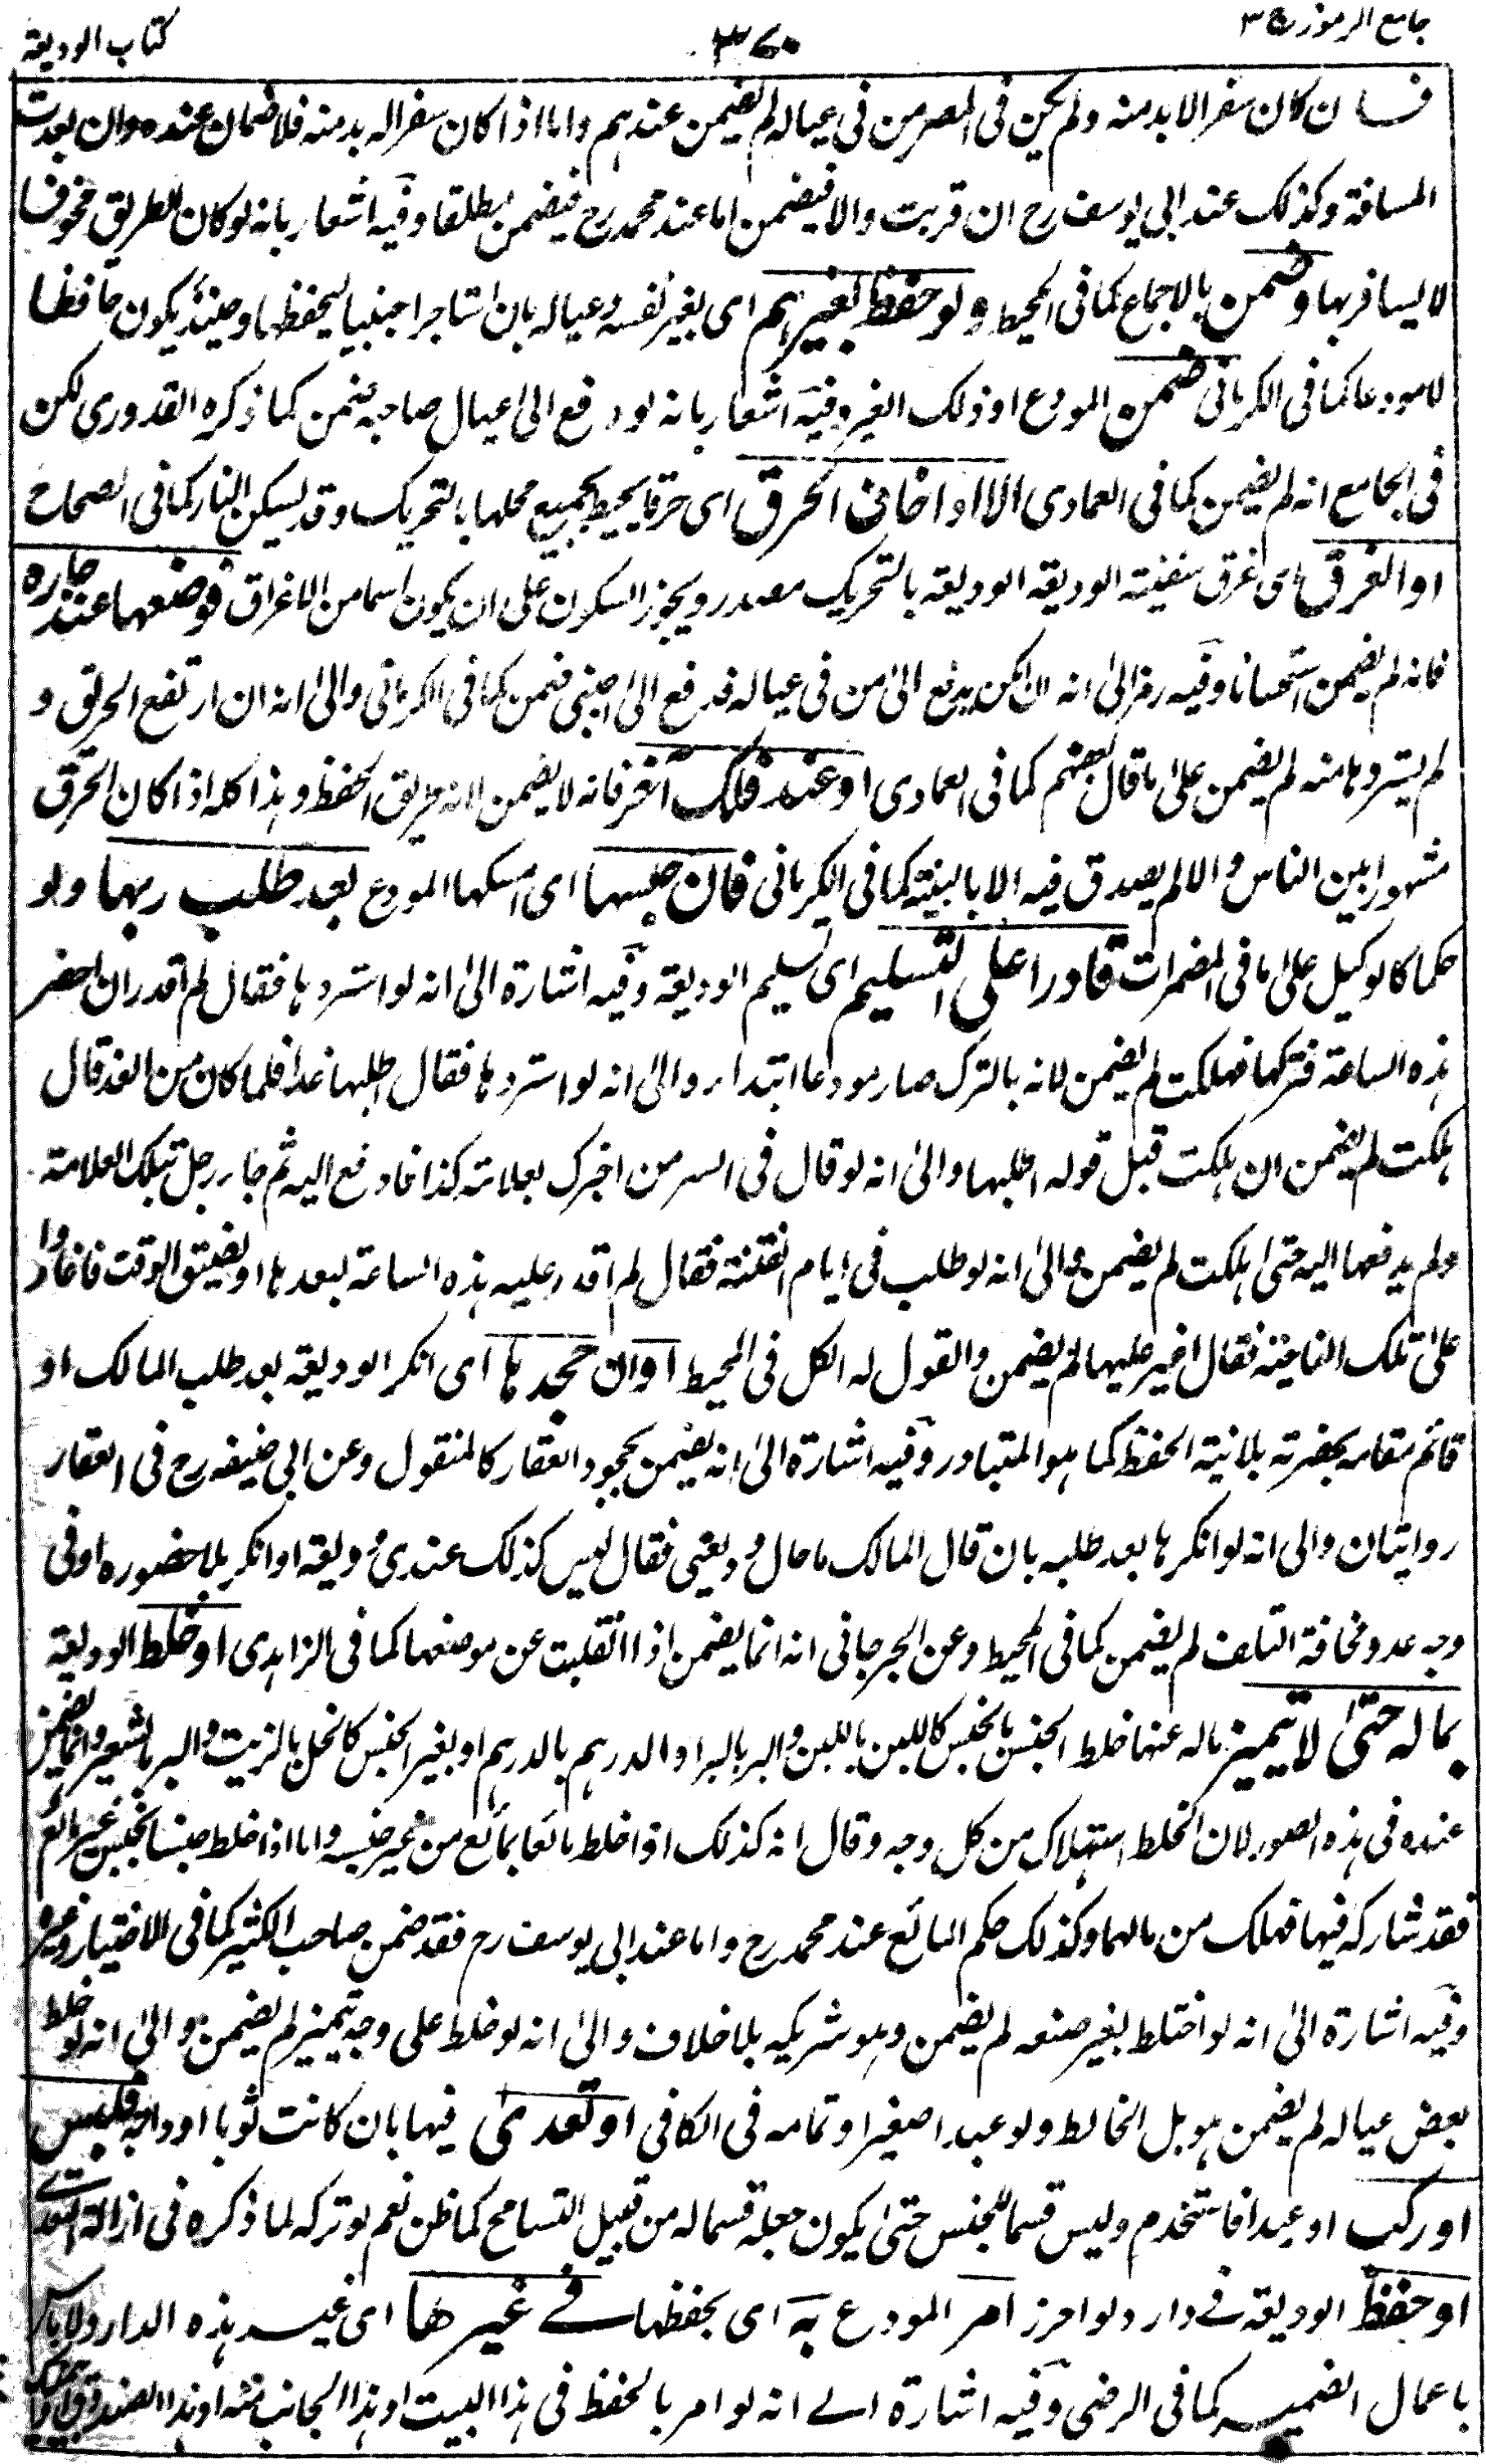 جامع الرموز ج٣
٣٧٠
كتاب الوديعة
فـان كان سفرا لا بد منه ولم يكن في المصر من في عياله لم يضمن عندهم واما اذا كان سفرا له بد منه فلا ضمان عنده وان بعدت
المسافة وكذلك عند ابي يوسف رح ان قربت والا فيضمن اما عند محمد رح فيضمن مطلقا وفيه اشعار بانه لو كان الطريق مخوفا
لا يسافر بها وضمن بالاجماع كما في المحيط ولو حفظ بغيرهم اى بغير نفسه وعياله بان استاجر اجنبيا ليحفظها وحينئذ يكون حافظا
لا مودعا كما في الكرماني ضمن المودع او ذلك الغير وفيه اشعار بانه لو دفع الى عيال صاحبه ضمن كما ذكره القدوري لكن
في الجامع انه لم يضمن كما في العمادى الا اذا خاف الحرق اى حرقا يحيط بجميع محلها بالتحريك وقد يسكن النار كما في الصحاح
او الغرق اى غرق سفينة الوديعة الوديعة بالتحريك مصدر ويجوز السكون على ان يكون اسما من الاغراق فوضعها عند جاره
فانه لم يضمن استحسانا وفيه رمز الى انه ان امكن يدفع الى من في عياله فدفع الى اجنبي ضمن كما في الكرماني والى انه ان ارتفع الحريق و
لم يستردها منه لم يضمن على ما قال بعضهم كما في العمادى او عند فلك آخر فانه لا يضمن لانه طريق الحفظ وهذا كله اذا كان الحرق
مشهورا بين الناس والا لم يصدق فيه الا بالبينة كما في الكرماني فان حبسها اى امسكها المودع بعد طلب ربها ولو
حكما كالوكيل على ما في المضمرات قادرا على التسليم اى تسليم الوديعة وفيه اشارة الى انه لو استردها فقال لم اقدر ان احضر
هذه الساعة فتركها فهلكت لم يضمن لانه بالترك صار مودعا ابتداء والى انه لو استردها فقال اطلبها غدا فلما كان من الغد قال
هلكت لم يضمن ان هلكت قبل قوله اطلبها والى انه لو قال في السر من اخبرك بعلامة كذا فادفع اليه ثم جاء رجل بتلك العلامة
ولم يدفعها اليه حتى هلكت لم يضمن والى انه لو طلب في ايام الفتنة فقال لم اقدر عليه هذه الساعة لبعدها او لضيق الوقت فاغاروا
على تلك الناحية فقال اغير عليها لم يضمن والقول له الكل في المحيط او ان جحدها اى انكر الوديعة بعد طلب المالك او
قائم مقامه بحضرته بلا نية الحفظ كما هو المتبادر وفيه اشارة الى انه يضمن بجحود العقار كالمنقول وعن ابي حنيفه رح في العقار
روايتان والى انه لو انكرها بعد طلبه بان قال المالك ما حال وديعتي فقال ليس كذلك عندى وديعة او انكر بلا حضوره او في
وجه عدو مخافة التلف لم يضمن كما في المحيط وعن الجرجاني انه انما يضمن اذا انتقلت عن موضعها كما في الزاهدى او خلط الوديعة
بماله حتى لا يتميز ماله عنها خلط الجنس بالجنس كاللبن باللبن والبر بالبر او الدرهم بالدرهم او بغير الجنس كالخل بالزيت والبر بالشعير وانما يضمن
عنده في هذه الصور لان الخلط استهلاك من كل وجه وقال انه كذلك اذا خلط مائعا بمائع من غير جنسه واما اذا خلط جنسا بجنس غير مائع
فقد شاركه فيها فهلك من مالهما وكذلك حكم المائع عند محمد رح واما عند ابي يوسف رح فقد ضمن صاحب الكثير كما في الاختيار وغيره
وفيه اشارة الى انه لو اختلط بغير صنعه لم يضمن وهو شريكه بلا خلاف والى انه لو خلط على وجه يتميز لم يضمن والى انه لو خلط
بعض عياله لم يضمن هو بل الخالط ولو عبدا صغيرا وتمامه في الكافي او تعدى فيها بان كانت ثوبا او دابة فلبس
او ركب او عبدا فاستخدم وليس قسما للجنس حتى يكون جعله قسما له من قبيل التسامح كما ظن نعم لو تركه لما ذكره في ازالة التعدى
او حفظ الوديعة في دار ولو احرز امر المودع به اى بحفظها في غيرها اى غير هذه الدار ولا باس
باعمال الضمير كما في الرضى وفيه اشارة الى انه لو امر بالحفظ في هذا البيت او هذا الجانب منه او هذا الصندوق